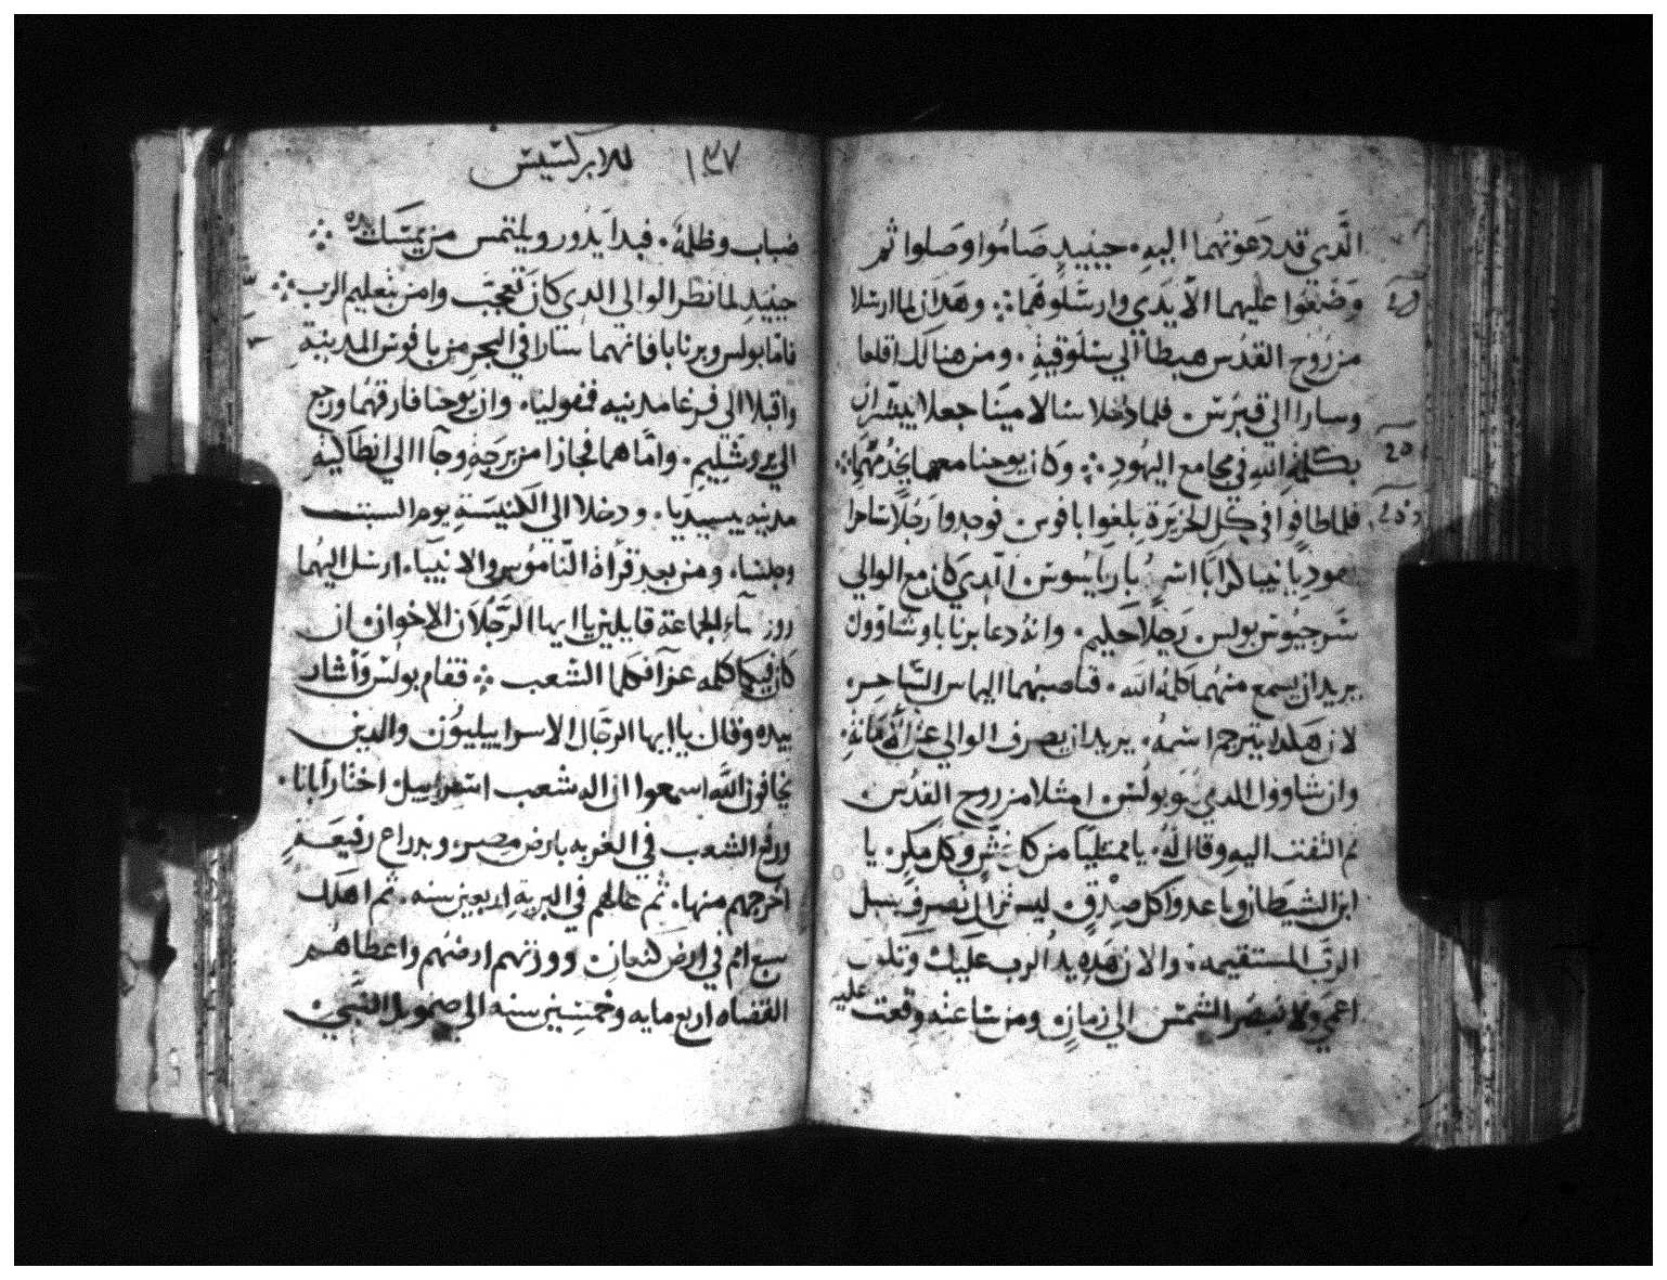 الذي قد دعوتهما اليه. حينيدٍ صَاموا وَصَلوا ثم
وَضعُوا عليهما الاَيدَي وارسَلوهُما ؞ وهَدَان لما ارسَلا
من رُوح القدُس هبطا الي سَلوقيةِ. ومن هنالَك اقلعا
وسارا الي قبرَس. فلما دُخلا سَالامينَا جعلا ايبشران
بكلمة الله في مجامع اليهُودِ ؞ وكان يوحنا معهما يخدمُهما ؞
فلما طافوا في كل الجزيرَة بلغوا بافوس. فوجدوا رَجُلاً ساحرا
يهودِيا نبيا كدابَا اسمُه باريَاسُوس. الّدي كان مع الوالي
سَرجيُوس بولس. رَجلاً حَليم. وانهُ دعا برنابا وشاوول
يريد ان يسمع منهما كلمة الله. فناصبهُما اليماس السَاحِر.
لان هَكدا يترجم اسمهُ. يريد ان يصرف الوالي عن الامَانةِ.
وان شاوول الدي هو بولُس. امتلا من روح القدُس.
ثم التفت اليهِ وقال لهُ. يا ممتليًا من كل شَرٍ وكل مَكرٍ. يا
ابن الشيطان ويا عدوا كل صِدقٍ. ليس تزال تصرِف سبل
الرَب المستقيمه. والان هَده يد الرب عليك وَتكون
اعمَي ولا تبصُر الشمس الي زمانٍ. ومن سَاعته وقعت عليه
للابركسيس ١٣٧
ضباب وظلمهُ. فبدا يَدُور ويلتمس من يمسَك يده ؞
حينيدِ لما نظر الوالي الدي كان تعجَب وامن بتعليم الرب ؞
فاما بولس وبرنابا فانهما سَارا في البحرِ من بافوس المدينةِ
واقبلا الي فرغا مدينيه فمفوليا. وان يوحنا فارقهُما ورجع
الي يروشَليم. وامّا هما فجازا من برجَة وجآا الي انطاكيةِ
مدينه بيسيديا. ودخلا الي الكنيسَةِ يوم السبت
وجلسَا. ومن بعد قرُاة النّامُوس والانبيَآء. ارسَل اليهُما
روسآء الجماعة قايلين يا ايها الرَجُلان الاخوان ان
كان فيكما كلمه عزآ فكلما الشعب ؞ فقام بولُس وَأشار
بيده وقال يا ايها الرجَال الاسراييليوُن. والدين
يخافون اللّه اسمعوا ان اله شعب اسَراييل اختار آبانا.
ورفع الشعب في الغربه بارض مِصر. وبدراع رفيعَةٍ
اخرجهم منها. ثم عالهم في البريةِ اربعين سنه. ثم اهلَك
سبع امم في ارض كنعان. وورتهم ارضهم واعطاهُم
القضاه اربع مايه وخمسِين سنه الي صَموييل النَبي.